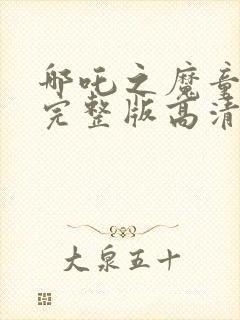 哪吒之魔童
完整版高清
大泉五十